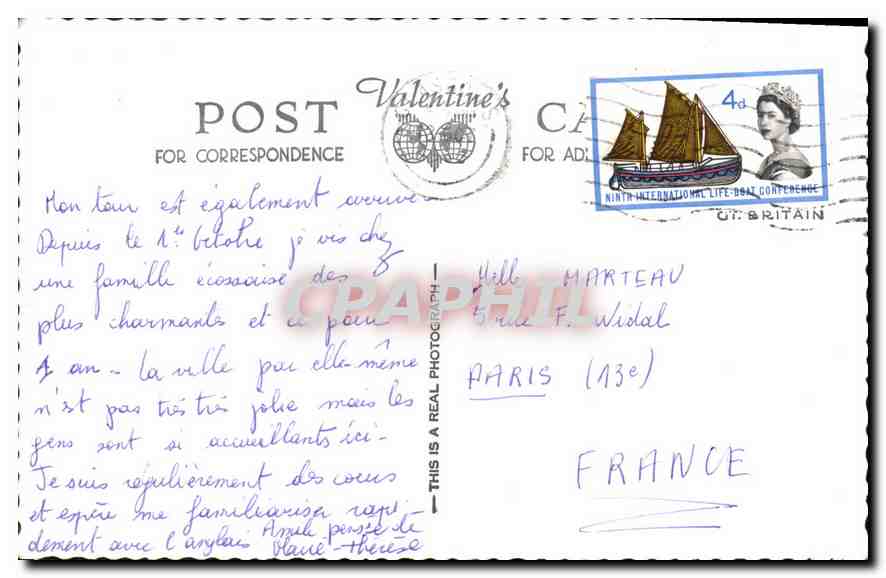 Valentine's
POST CA
FOR CORRESPONDENCE
FOR AD
4d
NINTH INTERNATIONAL LIFE-BOAT CONFERENCE
GT. BRITAIN
Mon tour est également
Depuis le 1er Octobre je vis chez
une famille écossaise des
plus charmantes et ce pour
1 an - La ville par elle-même
n'est pas très très jolie mais les
gens sont si accueillants ici -
Je suis régulièrement des cours
et espère me familiariser rapi-
dement avec l'anglais Amicale pensée de
Marie-Thérèse
THIS IS A REAL PHOTOGRAPH
Melle MARTEAU
5 rue F. Widal
PARIS (13e)
FRANCE
CPAPHIL